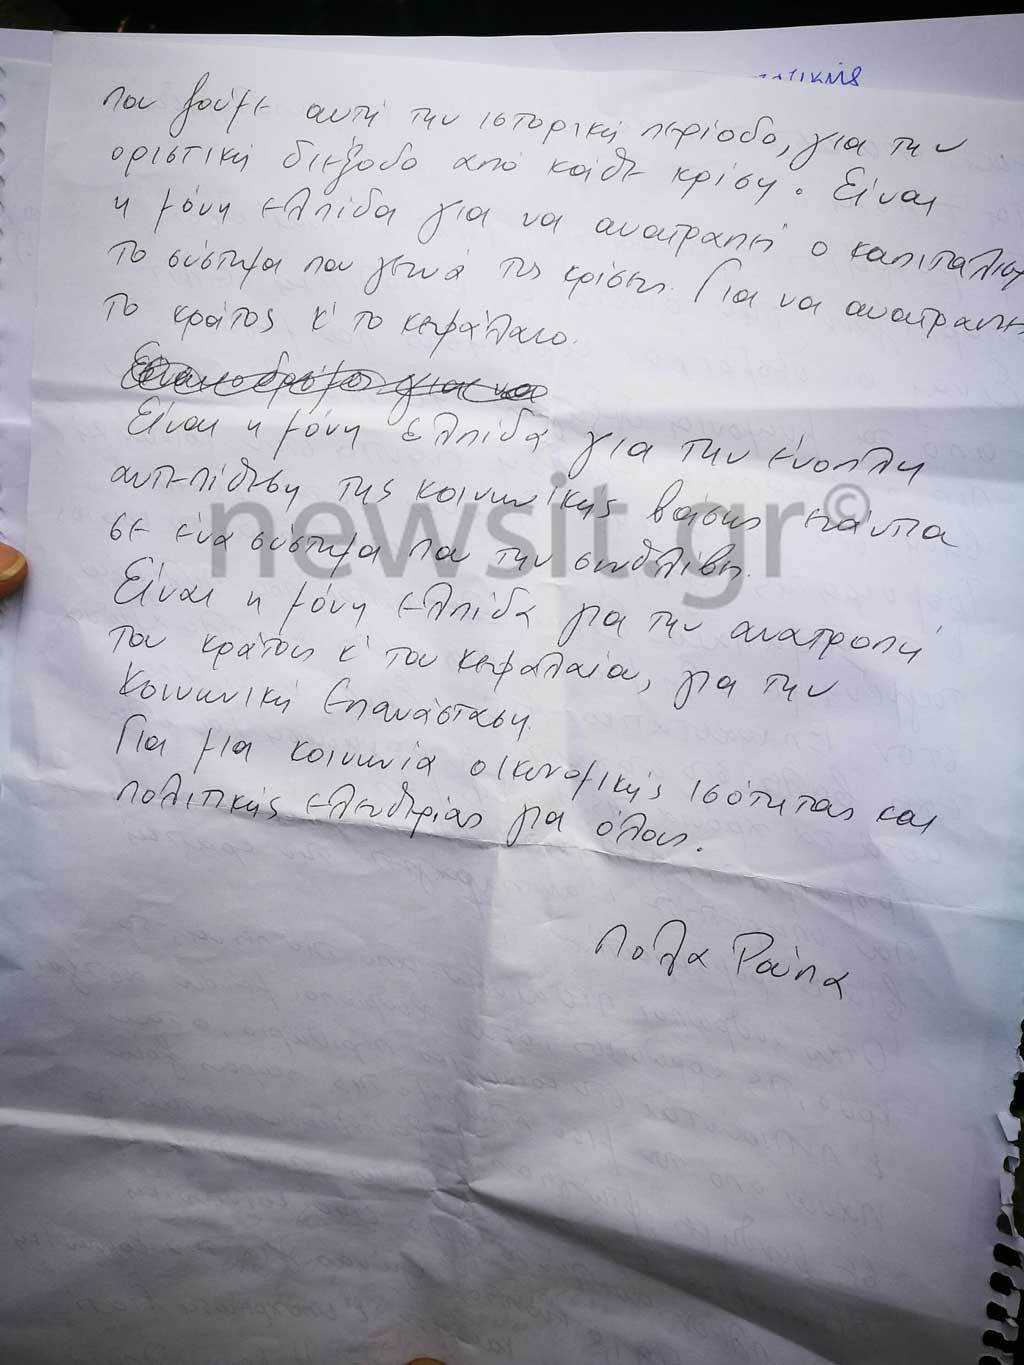 που ζούμε αυτή την ιστορική περίοδο, για την
οριστική διέξοδο από κάθε κρίση. Είναι
η μόνη ελπίδα για να ανατραπεί ο καπιταλισμ
το σύστημα που γεννά τις κρίσεις. Για να ανατραπεί
το κράτος κ' το κεφάλαιο.
Είναι η μόνη ελπίδα για την ένοπλη
αντεπίθεση της κοινωνικής βάσης ενάντια
σε ένα σύστημα που την συνθλίβει.
Είναι η μόνη ελπίδα για την ανατροπή
του κράτους κ' του κεφαλαίου, για την
Κοινωνική Επανάσταση.
Για μια κοινωνία οικονομικής ισότητας και
πολιτικής ελευθερίας για όλους.
Πόλα Ρούπα
newsit.gr©